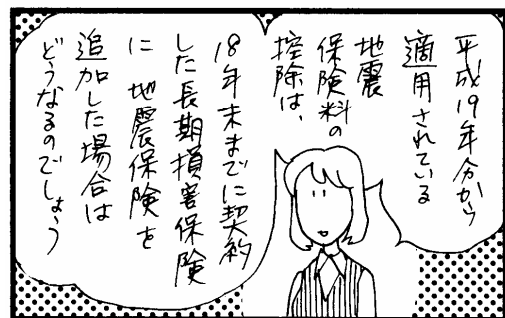 平成19年分から
適用されている
地震
保険料の
控除は、
18年末までに契約
した長期損害保険
に地震保険を
追加した場合は
どうなるのでしょう